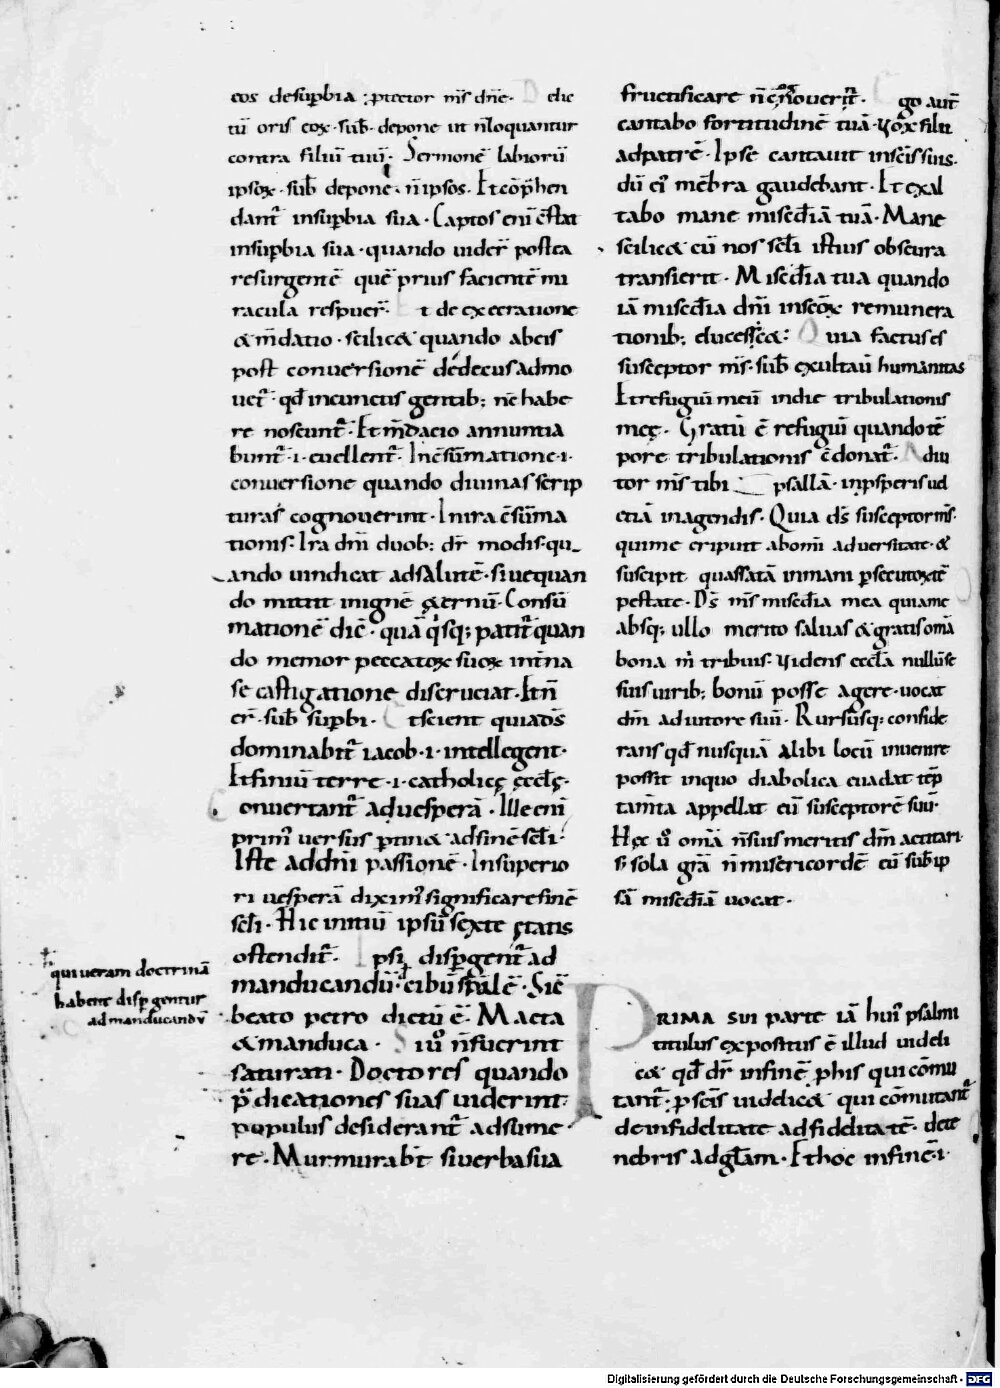 eos desuꝑbia ; ꝓtector nr̄s dn̄e · Delic
tū oris eoꝝ · sub̄ · depone ut n̄ loquantur
contra filiū tuū · Sermonē labiorū
ipsoꝝ · sub̄ depone · n̄ ipsos · Et cōp̄hen
dant̄ insuꝑbia sua · Captos eni ēstat
insuꝑbia sua · quando uider̄ postea
resurgentē quē prius facientē mi
racula respuer̄ · Et de execratione
& m̄datio · scilic& quando abeis
post conuersionē dedecus admo
uet̄ · qd̄ incunctis gentib; n̄ēhabe
re noscunt̄ · Et m̄dacio annuntia
bunt̄ · i · euellent̄ · In c̄sūmatione · i ·
conuersione quando diuinas scrip
turas cognouerint · In ira c̄sūma
tionis · Ira dn̄i duob; dr̄ modis · qu
ando uindicat adsalutē · siue quan
do mittit inignē ęternū · Consū
mationē dic̄ · quā q̇sq; patit̄ quan
do memor peccatoꝝ suoꝝ int̄na
se castigatione discruciat · Et n̄
er̄ · sub̄ suꝑbi · Et scient quia ds̄
dominabit̄ iacob · i · intellegent ·
Et finiū terre · i · catholicę ęccl̄ę ·
Conuertant̄ aduesperā · Ille eni
prim᾽ uersus ꝑtin& adfinē scl̄i ·
Iste ad dn̄i passionē · In suꝑerio
ri uesperā dixim᾽ significare finē
scl̄i · Hic initiū ipsi᾽ sexte ętatis
ostendit̄ · Ipsi disꝑgent̄ ad
manducandū · cibū sp̄alē · Sic̄
beato petro dictū ē · Macta
& manduca · Si uͦ n̄ fuerint
saturati · Doctores quando
p̄dicationes suas uiderint
populus desiderant̄ adsume
re · Murmurab̄t si uerba sua
qui ueram doctrinā
habent disꝑgentur
ad manducandū
fructificare n̄ cognouerit̄ · Ego aut̄
cantabo fortitudinē tuā · Uox filii
ad patrē · Ipse cantauit insc̄is suis ·
dū ei᾽ mēbra gaudebant · Et exal
tabo mane misedīā tuā · Mane
scilic& cū nos scl̄i istius obscura
transierit · Misedīa tua quando
iā misedīa dn̄i insc̄oꝝ remunera
tionib; ducesc& : Quia factus es
susceptor ms̄ · sub̄ exultau humanitas
Et refugiū meū indie tribulationis
meę · Gratū ē refugiū quando tē
pore tribulationis ēdonat̄ · Adiu
tor ms̄ tibi psallā · inpsperis ud
etiā inagendis · Quia ds̄ susceptor ms̄ ·
qui me eripuit abomi aduersitate · &
suscipit quassatā inmani ꝑsecutoꝝ tē
pestate · Ds̄ ms̄ misedīa mea quia me
absq; ullo merito saluas & gratis omā
bona m̄ tribuis · Uidens eccl̄a nullū se
suis uirib; bonū posse agere · uocat
dn̄m adiutorē suū · Rursūsq; conside
rans qd̄ nusquā alibi locū inuenire
possit inquo diabolica euadat tēp
tam̄ta appellat eū susceptorē suū ·
Hęc uͦ omā n̄ suis meritis dn̄m actitari
s; sola grā n̄ misericordē eū sub̄ ip
sā misedīā uocat ·
PRIMA SUI parte iā hui᾽ psalmi
titulus expositus ē illud uideli
c& qd̄ dr̄ infinē ꝓ his qui cōmu
tant̄ · ꝓ sc̄is uidelic& qui cōmutant̄
de infidelitate ad fidelitatē · de te
nebris ad glām · Et hoc infinē · i ·
Digitalisierung gefördert durch die Deutsche Forschungsgemeinschaft · DFG